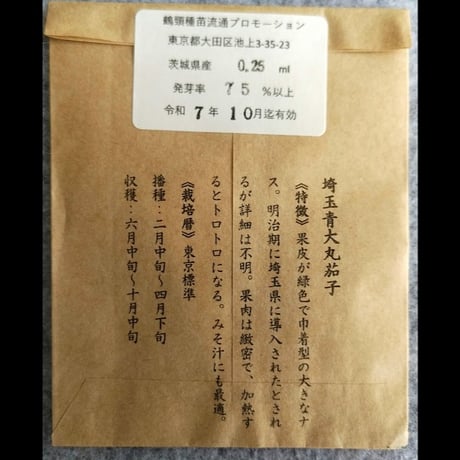 鶴頸種苗流通プロモーション
東京都大田区池上3-35-23
茨城県産 0.25 ml
発芽率 75 %以上
令和 7年 10月迄有効
埼玉青大丸茄子
《特徴》果皮が緑色で巾着型の大きなナ
ス。明治期に埼玉県に導入されたとされ
るが詳細は不明。果肉は緻密で、加熱す
るとトロトロになる。みそ汁にも最適。
《栽培暦》東京標準
播種：二月中旬～四月下旬
収穫：六月中旬～十月中旬